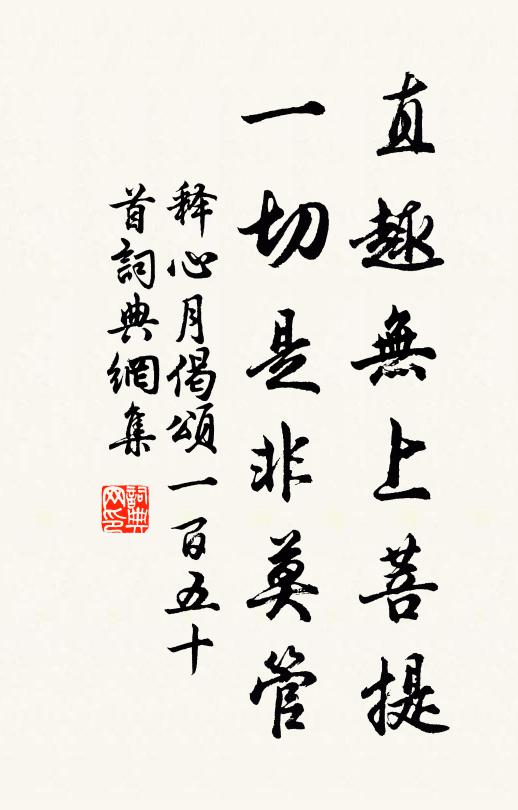 直趣無上菩提
一切是非莫管
释心月偈頌一百五十
首詞典網集
詞典网印